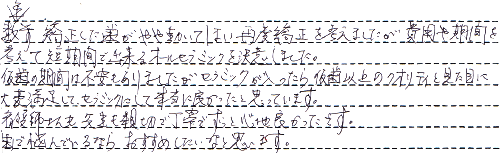 数年前矯正した歯がやや動いてしまい再度矯正を考えましたが費用や期間を
考えて短期間で出来るオールセラミックを決意しました。
仮歯の期間は不安もありましたがセラミックが入ったら仮歯以上のクオリティと見た目に
大変満足してセラミックにして本当に良かったと思っています。
衛生士さんも先生も親切で丁寧ですごく心地良かったです。
歯で悩んでいるなら、おすすめしたいなと思います。